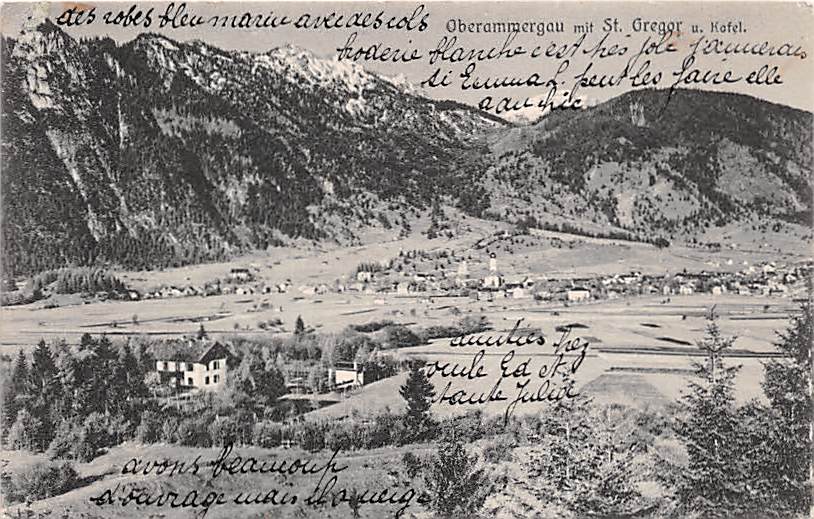 des robes bleu marin avec des cols
Oberammergau mit St. Gregor u. Kofel.
broderie blanche c'est très joli j'aimerais
si Emma L. peut les faire elle
a du chic
amitiés chez
oncle Ed et
tante Julia
avons beaucoup
d'ouvrage mais il a neigé